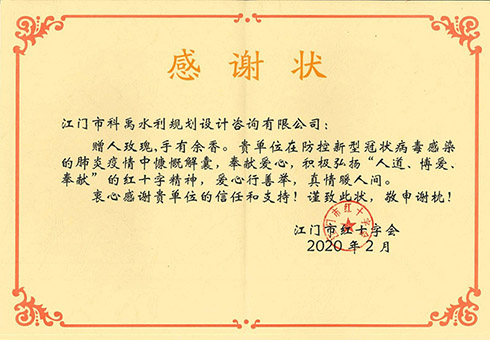 感谢状
江门市科禹水利规划设计咨询有限公司：
赠人玫瑰,手有余香。贵单位在防控新型冠状病毒感染
的肺炎疫情中慷慨解囊，奉献爱心，积极弘扬“人道、博爱、
奉献”的红十字精神，爱心行善举，真情暖人间。
衷心感谢贵单位的信任和支持！谨致此状，敬申谢忱！
江门市红十字会
2020年2月
江门市红十字会